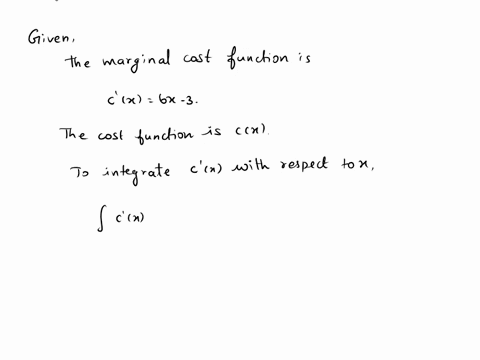 Given,
The marginal cost function is
c'(x) = 6x - 3.
The cost function is c(x).
To integrate c'(x) with respect to x,
∫ c'(x)